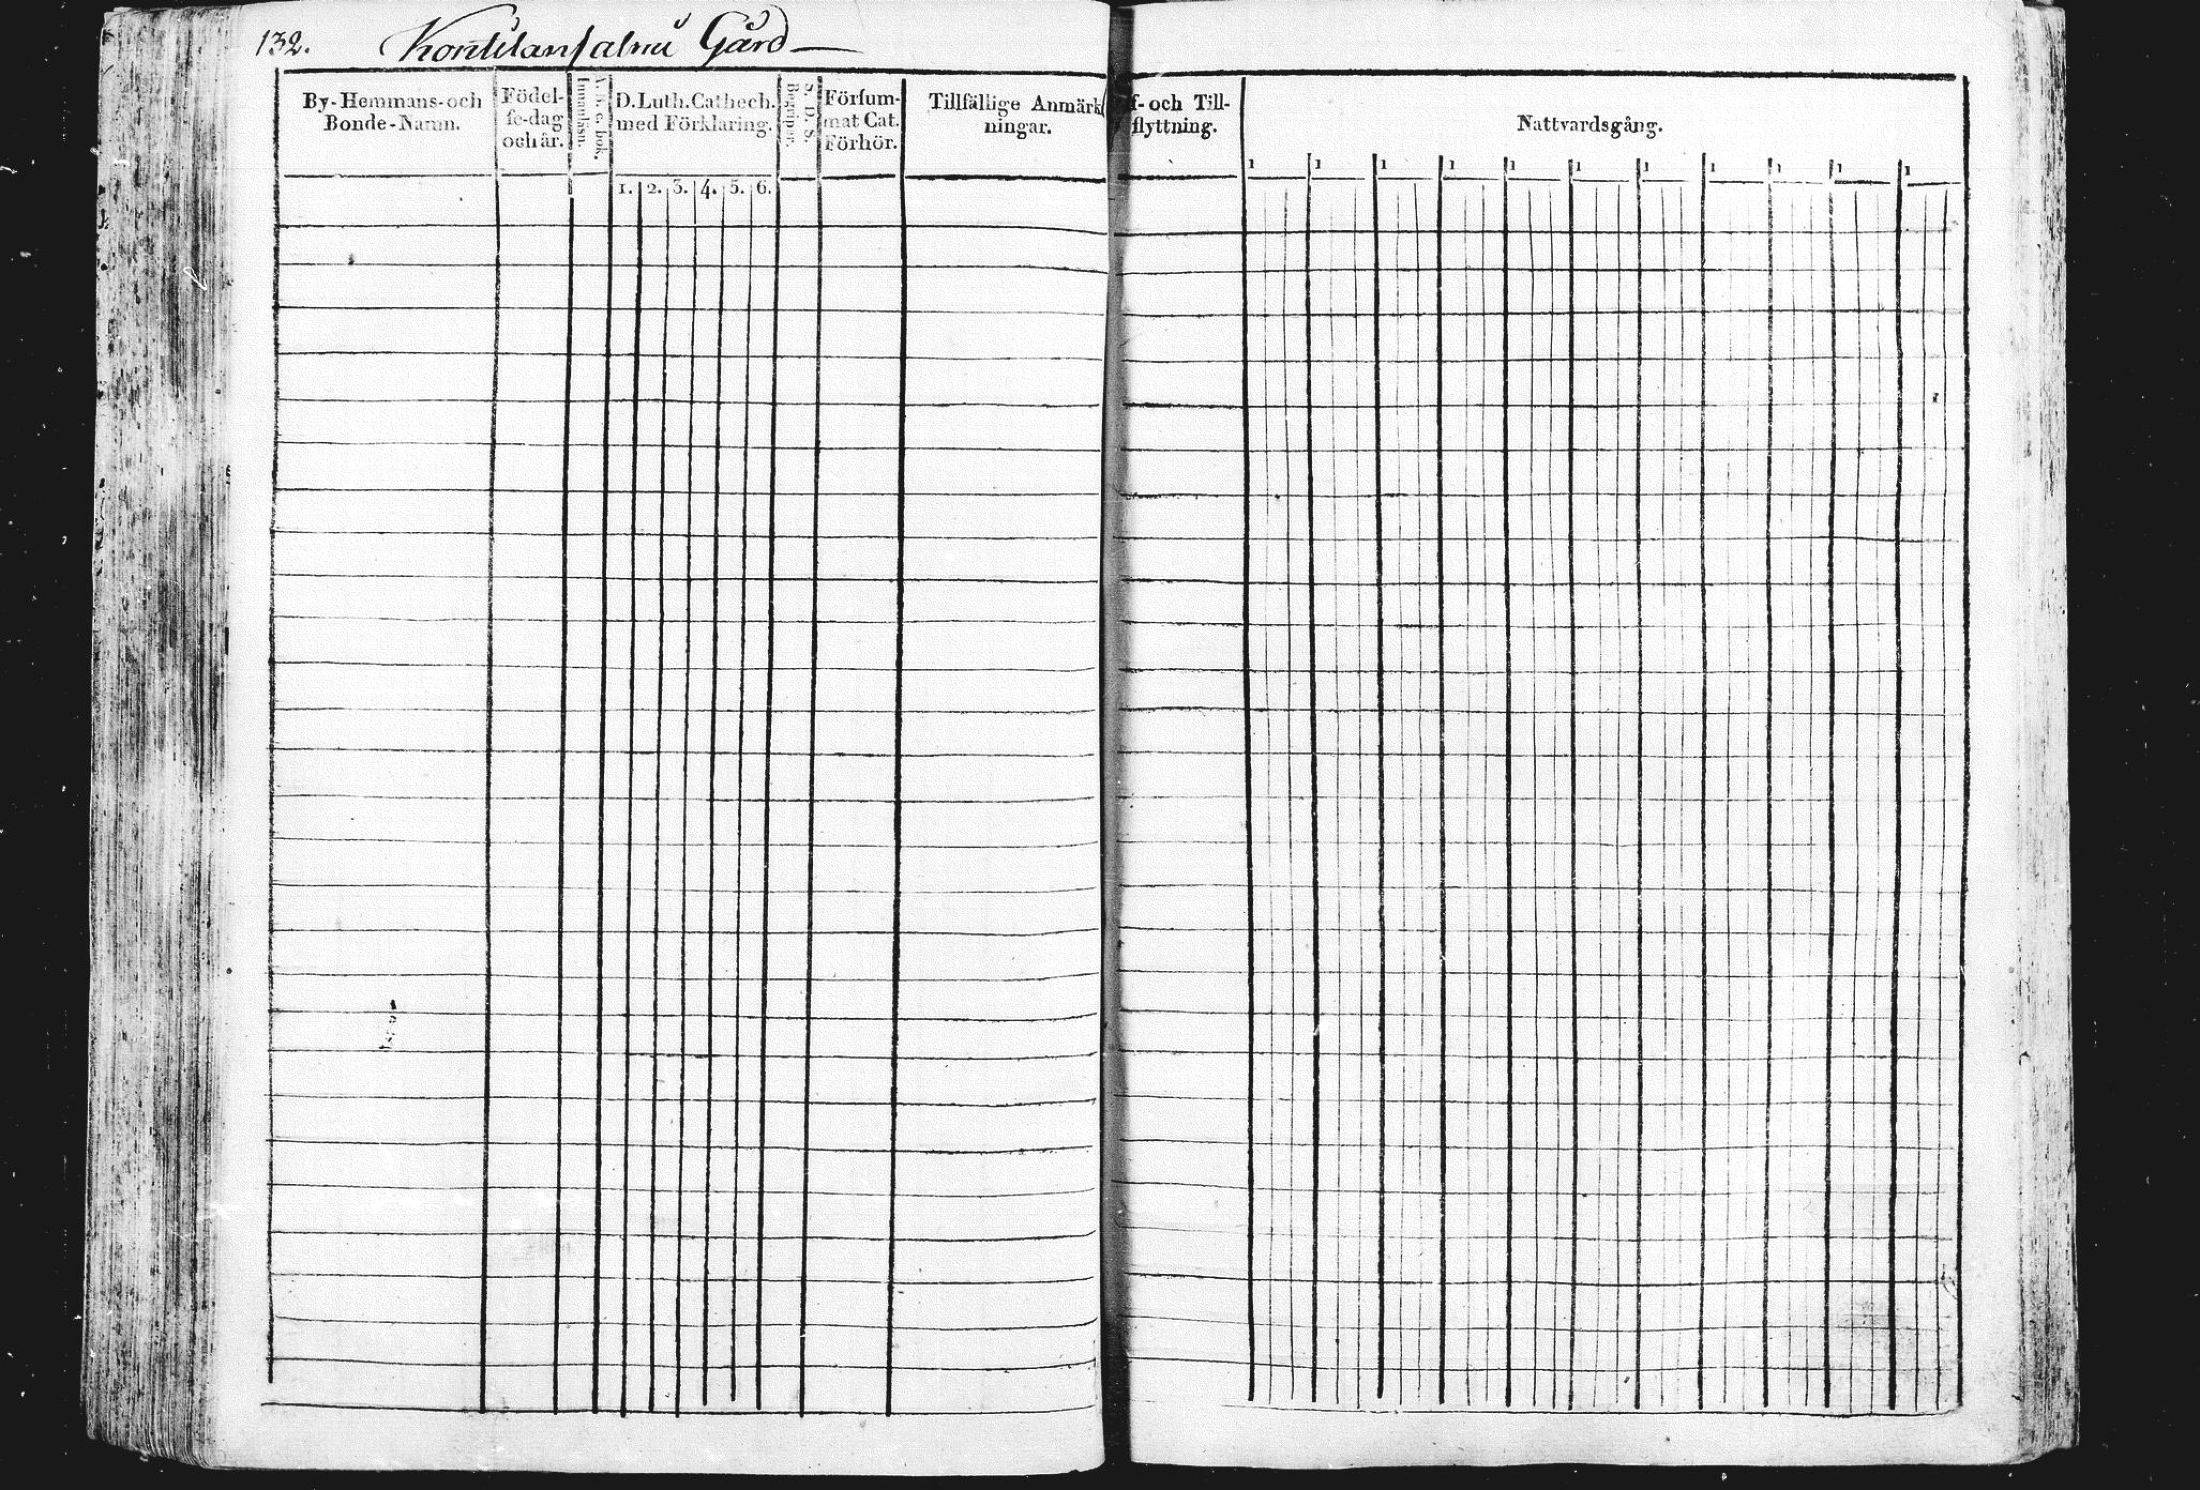 132. Kontilansalmu Gård
By-Hemmans-och
Bonde-Namn.
Födel-
se-dag
och år.
Innanläsn.
D. Luth. Cathech.
med Förklaring.
1. 2. 3. 4. 5. 6.
Begriper.
Försum-
mat Cat.
Förhör.
Tillfällige Anmärk
ningar.
f- och Till-
flyttning.
Nattvardsgång.
1 1 1 1 1 1 1 1 1 1 1